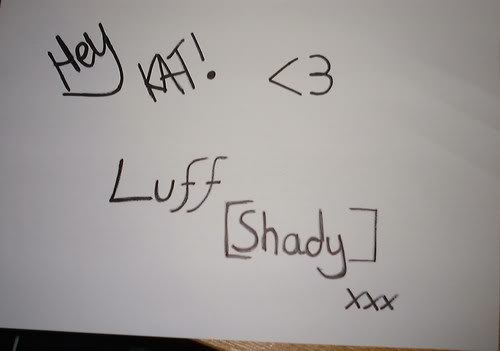 Hey KAT! <3
Luff
[Shady]
xxx